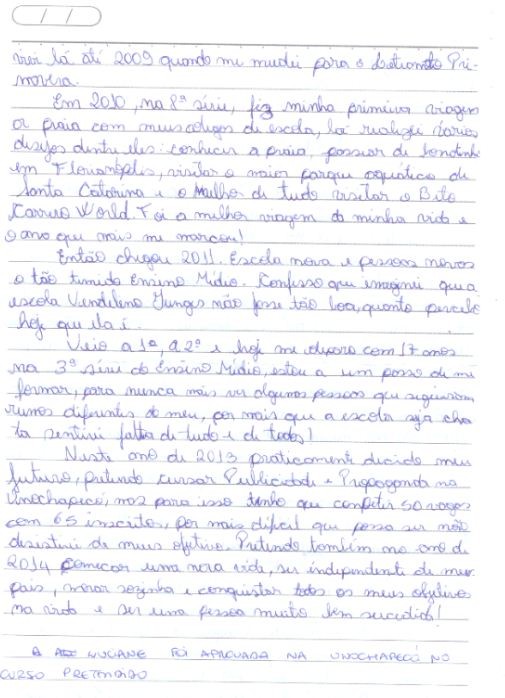 viver lá até 2009 quando me mudei para o Loteamento Pri-
mavera.
Em 2010, na 8ª série, fiz minha primeira viagem
a praia com meus colegas de escola, lá realizei vários
desejos dentre eles: conhecer a praia, passear de bondinho
em Florianópolis, visitar o maior parque aquático de
Santa Catarina e o Melhor de tudo visitar o Beto
Carrero World. Foi a melhor viagem da minha vida e
o ano que mais me marcou!
Então chegou 2011. Escola nova e pessoas novas
o tão temido Ensino Médio. Confesso que imaginei que a
escola Vendelino Junges não fosse tão boa, quanto percebo
hoje que ela é.
Veio a 1ª, a 2ª e hoje me deparo com 17 anos
na 3ª série do Ensino Médio, estou a um passo de me
formar, para nunca mais ver algumas pessoas que seguiram
rumos diferentes do meu, por mais que a escola seja cha
ta sentirei falta de tudo e de todos!
Neste ano de 2013 praticamente decido meu
futuro, pretendo cursar Publicidade e Propaganda na
Unochapecó, mas para isso tenho que competir 50 vagas
com 65 inscritos, por mais difícil que possa ser não
desistirei de meus objetivo. Pretendo também no ano de
2014 começar uma nova vida, ser independente de meus
pais, morar sozinha e conquistar todos os meus objetivos
na vida e ser uma pessoa muito bem sucedida!
A LUCIANE FOI APROVADA NA UNOCHAPECÓ NO
CURSO PRETENDIDO